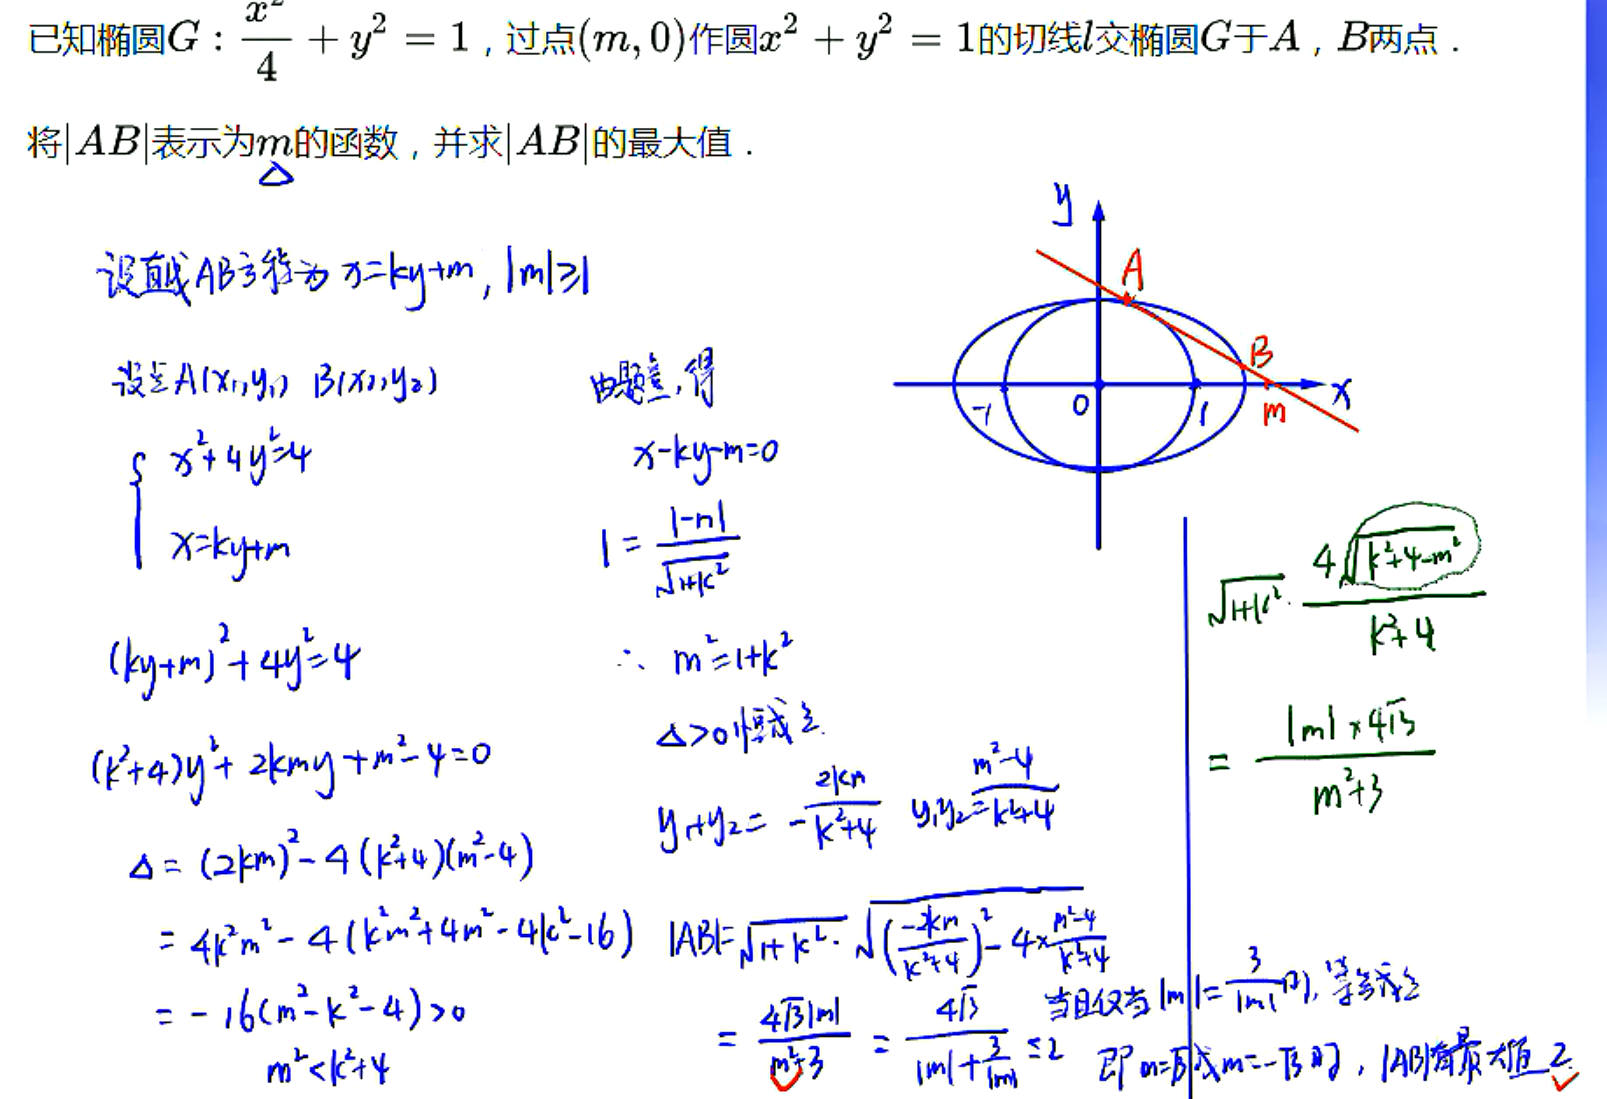 已知椭圆G：x²/4 + y² = 1，过点(m, 0)作圆x² + y² = 1的切线l交椭圆G于A，B两点．
将|AB|表示为m的函数，并求|AB|的最大值．
△
设直线AB方程为 x=ky+m, |m|≥1
设点A(x₁,y₁) B(x₂,y₂)
{ x²+4y²=4
x=ky+m
(ky+m)²+4y²=4
(k²+4)y²+2kmy+m²-4=0
△=(2km)²-4(k²+4)(m²-4)
=4k²m²-4(k²m²+4m²-4k²-16)
=-16(m²-k²-4)>0
m²<k²+4
由题意,得
x-ky-m=0
1=|-m|/√(1+k²)
∴ m²=1+k²
△>0恒成立.
y₁+y₂=-2km/(k²+4) y₁y₂=(m²-4)/(k²+4)
|AB|=√(1+k²)·√((-2km/(k²+4))²-4×(m²-4)/(k²+4))
=4√3|m|/(m²+3)=4√3/(|m|+3/|m|)≤2
当且仅当|m|=3/|m|时,等号成立
即m=√3或m=-√3时,|AB|有最大值2.
y
A
B
-1
0
1
m
x
√(1+k²)·4√(k²+4-m²)/(k²+4)
=|m|×4√3/(m²+3)